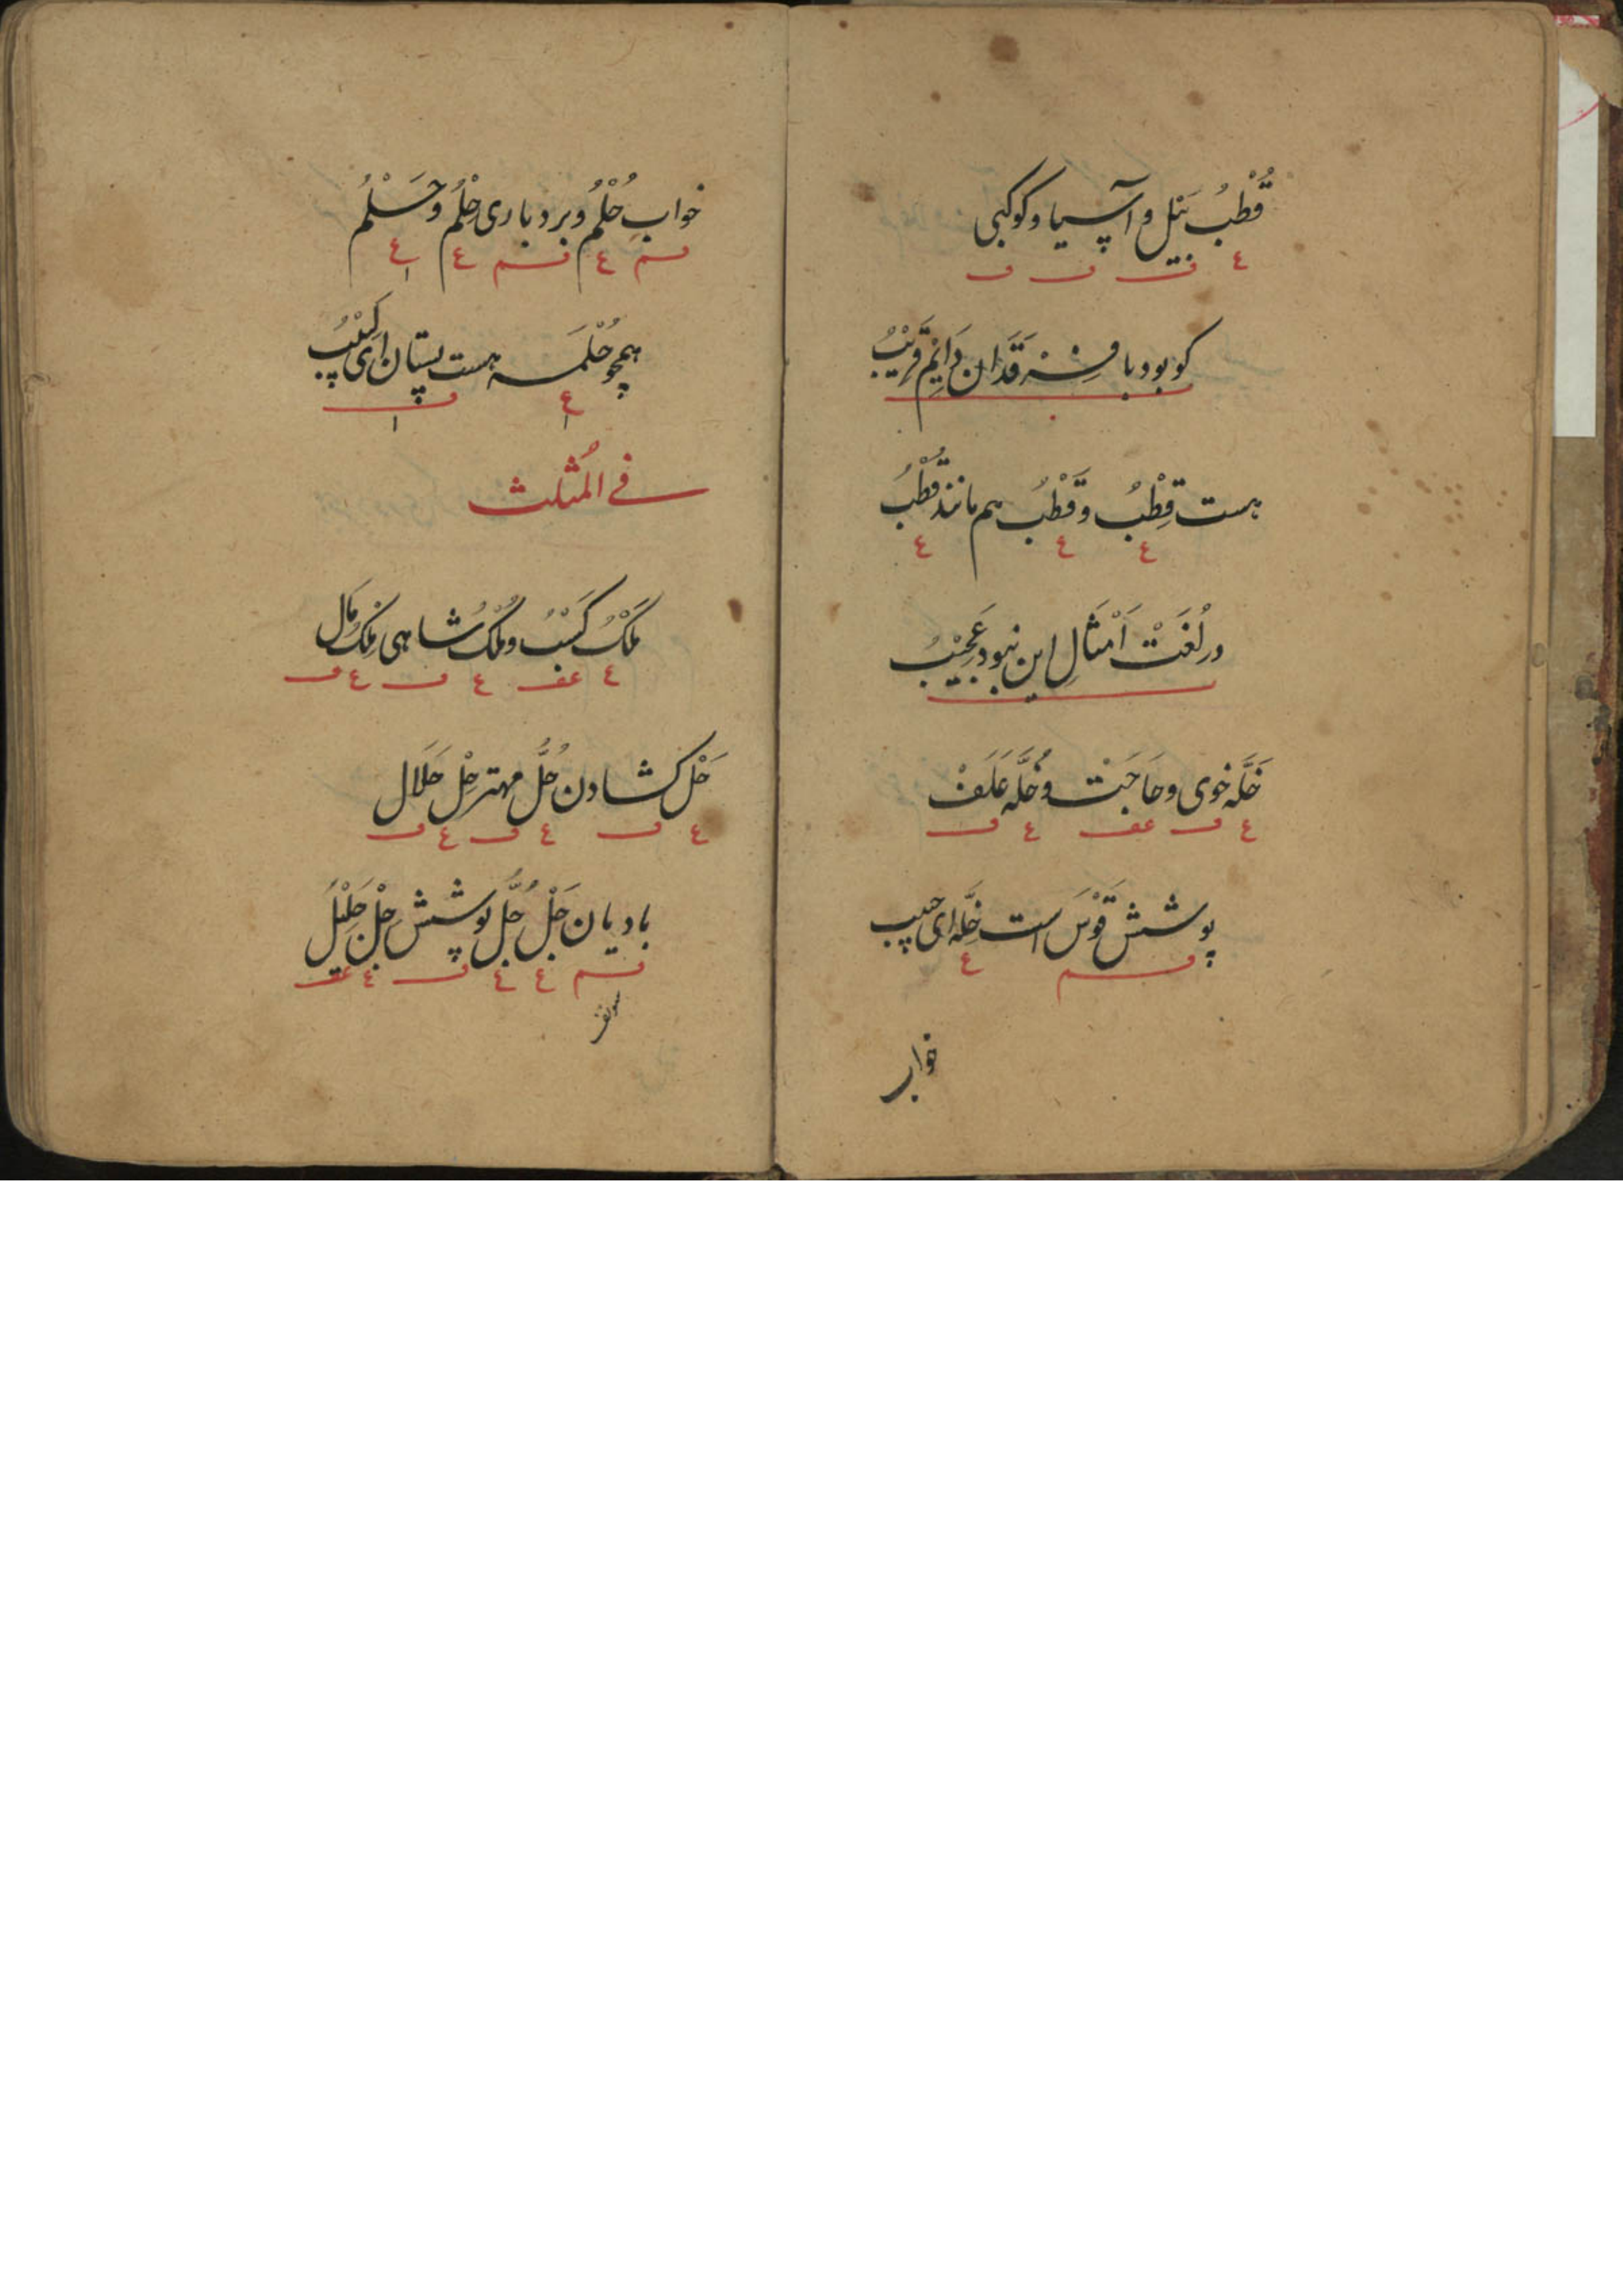 قُطْبُ يَل و آسیا و کوکبی
کو بود با فَرْقَدان دَائِم قَرِیْبُ
هست قِطْبُ و قَطْبُ هم مانند قُطْبُ
در لُغَتْ اَمْثَالِ این نبود عَجِیْبُ
خَلَّه خوی و حَاجَتْ و خُلَّه عَلَفْ
پوشش قَوْسَ است خِلَّه ای حبیب
خواب
خوابِ حُلْمُ و بردباری حِلْمُ و حَلْمُ
همچو حُلْمَه هست پستان ای لَبِیْبُ
فی المُثلث
مَلْکُ کَسْبُ و مُلْکُ شاهی مِلک مَال
حَلْ کشادن حُلُّ مهتر حِلْ حَلَال
بادیان جَلْ جُلُّ پوشش جِلْ جَلِیْلُ
ع ف ف ف
ع ع ع
ع ف عف ع ف
ف م ع
ف م ع ف م ع ع
ع ف
ع عف ع ف ع ف
ع ف ع ف ع ف
ف م ع ع ف ع عف